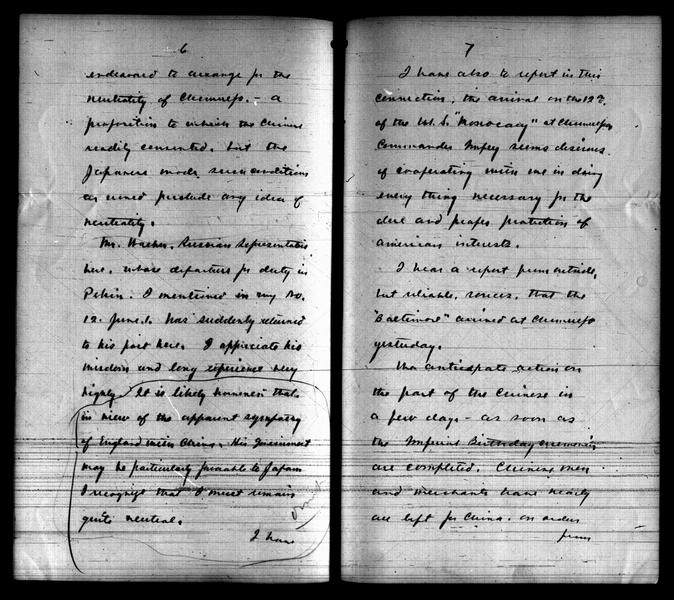 6
endeavored to arrange for the
neutrality of Chemulpo. – a
proposition to which the Chinese
readily consented. but the
Japanese made such conditions
as would preclude any idea of
neutrality.
Mr. Waeber, Russian Representative
here, whose departure for duty in
Pekin. I mentioned in my No.
12. June 1. has suddenly returned
to his post here. I appreciate his
wisdom and long experience very
highly. It is likely however that
in view of the apparent sympathy
of England with China. His Government
may be particularly favorable to Japan
I recognize that I must remain
quite neutral.
omit
I have
7
I have also to report in this
connection, the arrival on the 12th.
of the U. S. "Monocacy" at Chemulpo
Commander Impey seems desirous
of cooperating with me in doing
every thing necessary for the
due and proper protection of
American interests.
I hear a report from outside,
but reliable, sources, that the
"Baltimore" arrived at Chemulpo
yesterday.
We anticipate action on
the part of the Chinese in
a few days – as soon as
the Imperial Birthday ceremonies
are completed. Chinese men
and merchants have nearly
all left for China. on orders
from